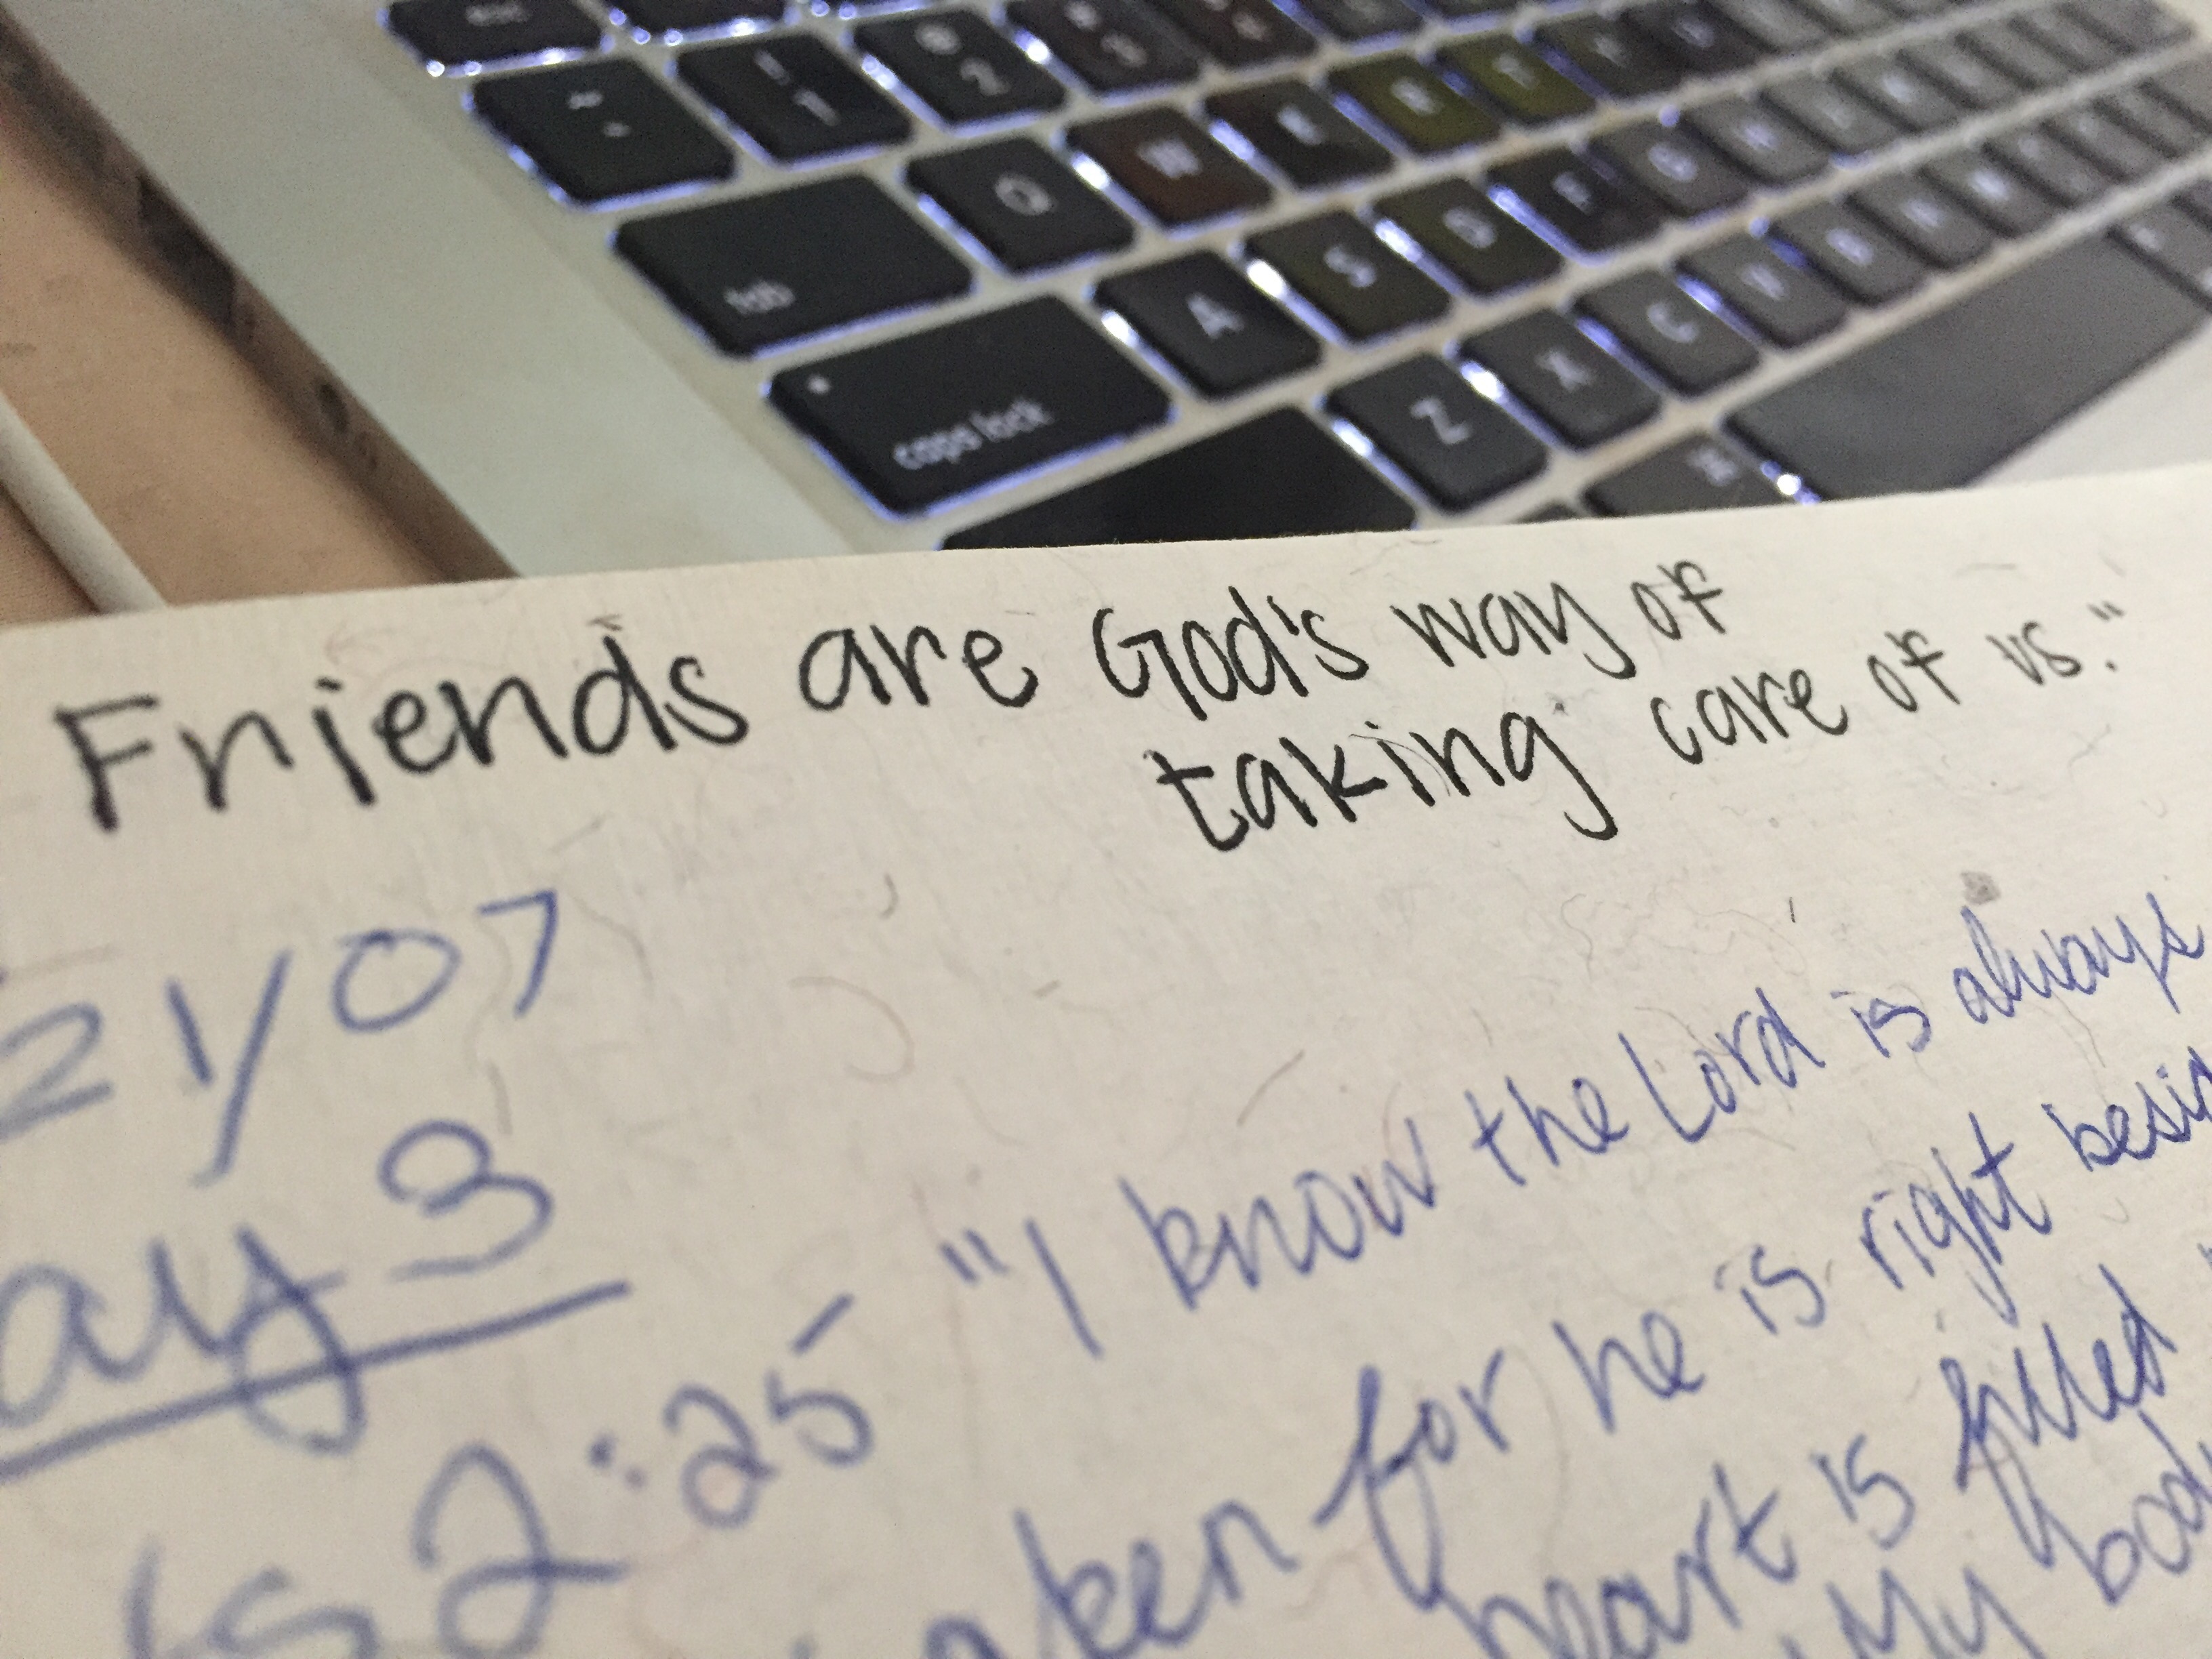 esc
~ `
! 1
@ 2
tab Q W E R T
caps lock A S D F G
Z X C V B N
⌘
Friends are God's way of
taking care of us."
21/07
ay 3
2:25 "I know the Lord is always
for he is right
heart is filled
My